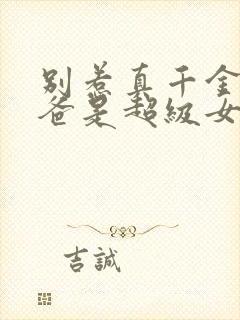 别惹真千金
爸是超级女
吉誠